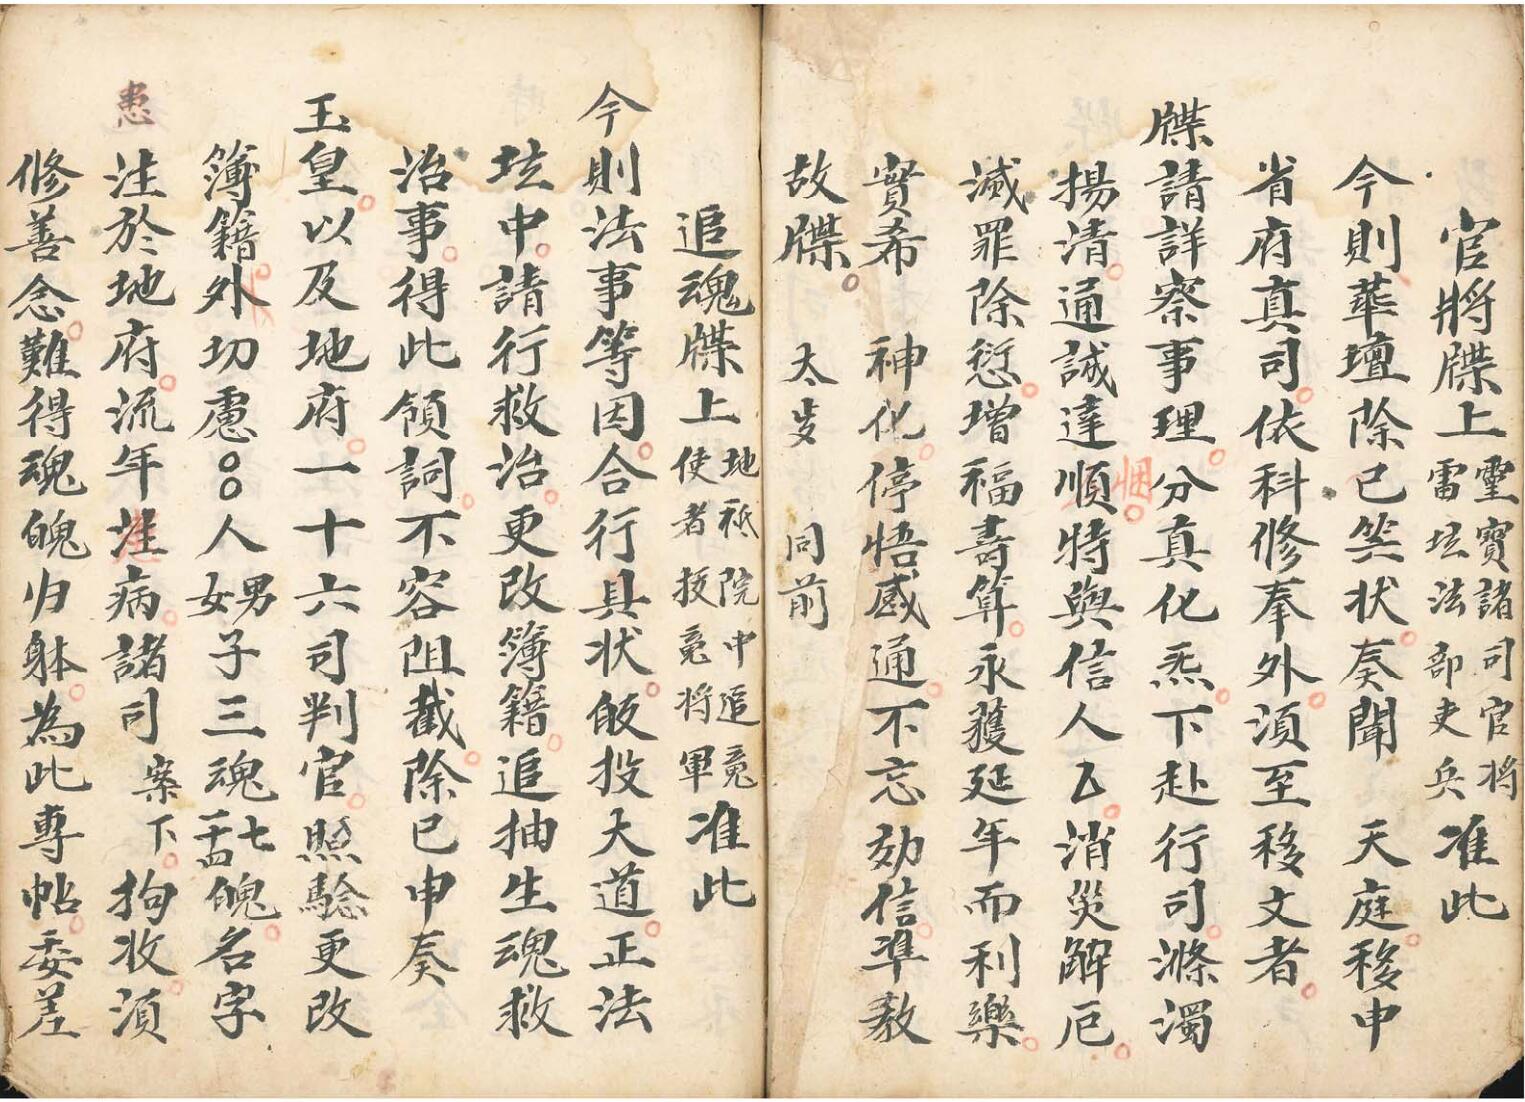 官將牒上靈寶諸司官将雷坛法部吏兵准此
今則華壇除已笁状奏聞　天庭移申
省府真司依科修奉外湏至移文者
牒請詳察事理分真化炁下赴行司滌濁
揚清通誠達悃順特與信人乙消災解厄
滅罪除愆增福壽算永獲延年而利樂
實希　神化停悟感通不忘効信準教
故牒　太岁　同前
追魂牒上地祇院中追䰟使者抜䰟将軍准此
今則法事等因合行具状皈投大道正法
坛中請行救治更改簿籍追抽生魂救
治事得此領詞不容阻截除已申奏
玉皇以及地府一十六司判官照驗更改
簿籍外切慮〇〇人男女子三魂七魄名字
注於地府流年患病諸司案下拘收湏
修善念難得魂魄归躰為此專帖委差